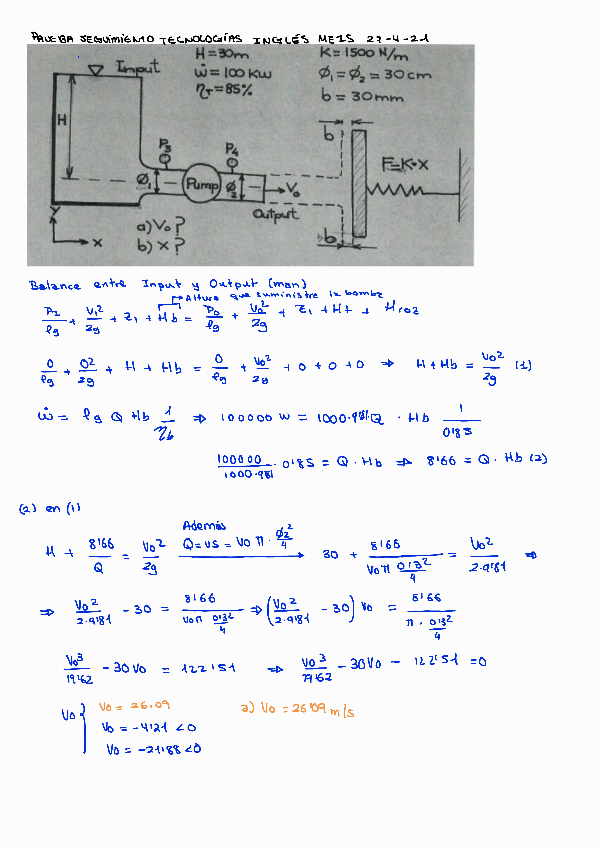 PRUEBA SEGUIMIENTO TECNOLOGÍAS INGLÉS MEIS 27-4-21
Input
H = 30m
ẇ = 100 KW
ηT = 85%
K = 1500 N/m
φ1 = φ2 = 30 cm
b = 30 mm
H
P3
P4
b
F=K·X
φ1
Pump
φ2
V0
Output
Y
X
a) V0?
b) X?
b
Balance entre Input y Output (man)
Altura que suministra la bomba
P1/ρg + V1²/2g + Z1 + Hb = P0/ρg + V0²/2g + Z1 + Ht + Hroz
0/ρg + 0²/2g + H + Hb = 0/ρg + V0²/2g + 0 + 0 + 0 ⇒ H + Hb = V0²/2g (1)
ẇ = ρg Q Hb 1/ηb ⇒ 100000 W = 1000·9'81 Q · Hb 1/0'85
100000/1000·9'81 · 0'85 = Q · Hb ⇒ 8'66 = Q · Hb (2)
(2) en (1)
Además
H + 8'66/Q = V0²/2g Q = VS = V0 π · φ2²/4 → 30 + 8'66/V0 π 0'3²/4 = V0²/2·9'81 ⇒
⇒ V0²/2·9'81 - 30 = 8'66/V0 π 0'3²/4 ⇒ (V0²/2·9'81 - 30) V0 = 8'66/π · 0'3²/4
V0³/19'62 - 30V0 = 122'51 ⇒ V0³/19'62 - 30V0 - 122'51 = 0
V0 { V0 = 26.09 a) V0 = 26'09 m/s
V0 = -4'21 < 0
V0 = -21'88 < 0